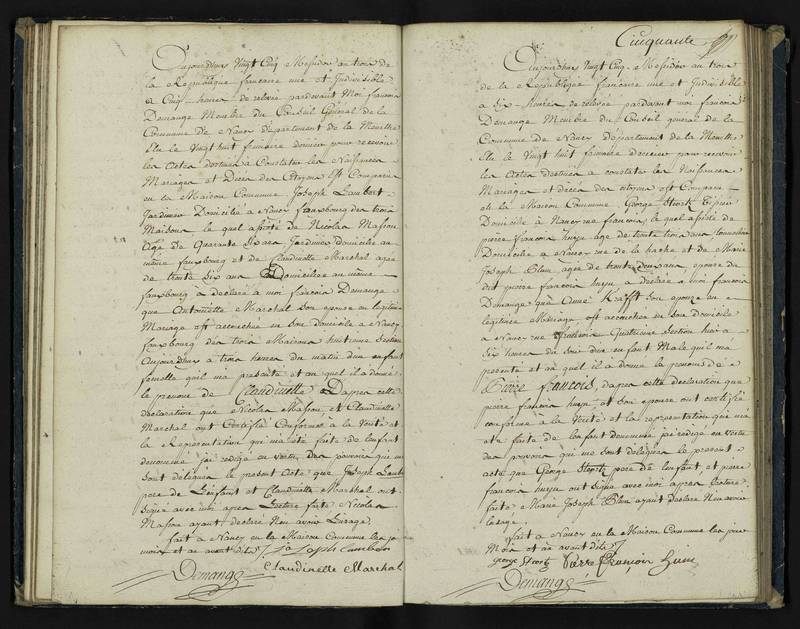 Aujourdhuy Vingt Cinq Messidor an trois de
la Republique francaise une et Indivisible
a Cinq heures de relevée pardevant Moi francois
Demange Membre du Conseil General de la
Commune de Nancy departement de la Meurthe
Elu le Vingt huit frimaire dernier pour recevoir
les Actes destinés a Constater les Naissances
Mariages et Décès des Citoyens Est Comparu
en la Maison Commune Joseph Lambert
Jardinier Domicilié a Nancy fauxbourg des trois
Maisons le quel assisté de Nicolas Masson
Agé de Quarante Six ans Jardinier domicilié au
même fauxbourg et de Claudinette Marchal agée
de trente Six ans domiciliée au même
fauxbourg a déclaré a moi francois Demange
que Antoinette Marchal son epouse en legitime
Mariage est accouchée en son domicile a Nancy
fauxbourg des trois Maisons huitieme Section
Aujourdhuy a trois heures du matin d'un enfant
femelle qu'il m'a presenté et au quel il a donné
le prenom de Claudinette D'apres cette
declaration que Nicolas Masson et Claudinette
Marchal ont Certifié Conforme a la Verité et
la Representation qui m'a été faite de l'enfant
denommé j'ai redigé en vertu des pouvoirs qui me
sont délégués le present Acte que Joseph Lambert
pere de l'enfant et Claudinette Marchal ont
signé avec moi apres Lecture faite Nicolas
Masson ayant déclaré N'en avoir L'usage.
fait a Nancy en la Maison Commune les jour
mois et an avant dits
Joseph Lambert
Claudinelle Marchal
Demange
Cinquante
Aujourdhuy Vingt Cinq Messidor an trois
de la Republique francaise une et Indivisible
a Six heures de relevée pardevant moi francois
Demange Membre du Conseil general de la
Commune de Nancy département de la Meurthe
Elu le Vingt huit frimaire dernier pour recevoir
les Actes destinés a constater les Naissances
Mariages et décès des citoyens est Comparu
en la Maison Commune George Stortz
Domicilié a Nancy rue francois, le quel assisté de
pierre francois agé de trente trois ans
Domicilié a Nancy rue de la hache et de Marie
Joseph Blan agée de trente deux ans epouse du
dit pierre francois a déclaré a moi francois
Demange que Krafft son epouse en
legitime Mariage est accouchée en son domicile
a Nancy rue Quatrieme Section hier a
Six heures du soir d'un enfant Male qu'il m'a
presenté et au quel il a donné le prenoms de
Pierre francois, dapres cette declaration que
pierre francois et son epouse ont certifié
conforme a la Verité et la representation qui m'a
été faite de l'enfant denommé j'ai redigé en vertu
des pouvoirs qui me sont délégués le present
acte que George Stortz pere de l'enfant et pierre
francois ont signé avec moi apres lecture
faite Marie Joseph Blan ayant declaré N'en avoir
l'usage.
fait a Nancy en la Maison Commune les jour
Mois et an avant dits
George Stortz Pierre François
Demange